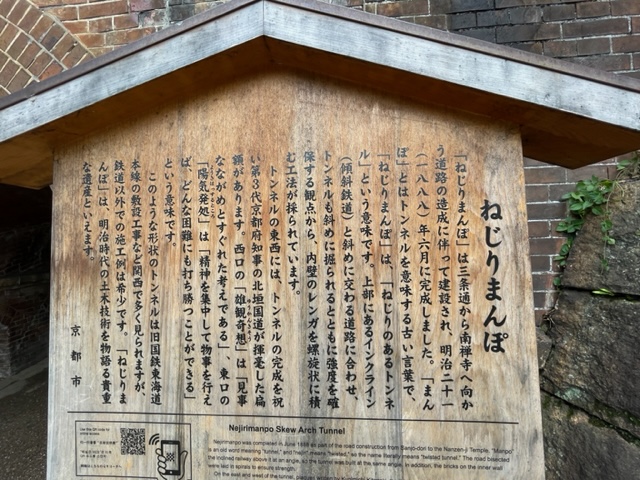 ねじりまんぽ
「ねじりまんぽ」は三条通から南禅寺へ向か
う道路の造成に伴って建設され、明治二十一
(一八八八)年六月に完成しました。「まん
ぽ」とはトンネルを意味する古い言葉で、
「ねじりまんぽ」は、「ねじりのあるトンネ
ル」という意味です。上部にあるインクライン
(傾斜鉄道)と斜めに交わる道路に合わせ、
トンネルも斜めに掘られるとともに強度を確
保する観点から、内壁のレンガを螺旋状に積
む工法が採られています。
トンネルの東西には、トンネルの完成を祝
い第3代京都府知事の北垣国道が揮毫した扁
額があります。西口の「雄観奇想」は「見事
なながめとすぐれた考えである」、東口の
「陽気発処」は「精神を集中して物事を行え
ば、どんな困難にも打ち勝つことができる」
という意味です。
このような形状のトンネルは旧国鉄東海道
本線の敷設工事など関西で多く見られますが、
鉄道以外での施工例は希少です。「ねじりま
んぽ」は、明治時代の土木技術を物語る貴重
な遺産といえます。
京都市
Nejirimanpo Skew Arch Tunnel
Nejirimanpo was completed in June 1888 as part of the road construction from Sanjo-dori to the Nanzen-ji Temple. "Manpo"
is an old word meaning "tunnel," and "nejiri" means "twisted," so the name literally means "twisted tunnel." The road bisected
the inclined railway above it at an angle, so the tunnel was built at the same angle. In addition, the bricks on the inner wall
were laid in spirals to ensure strength.
On the east and west of the tunnel,